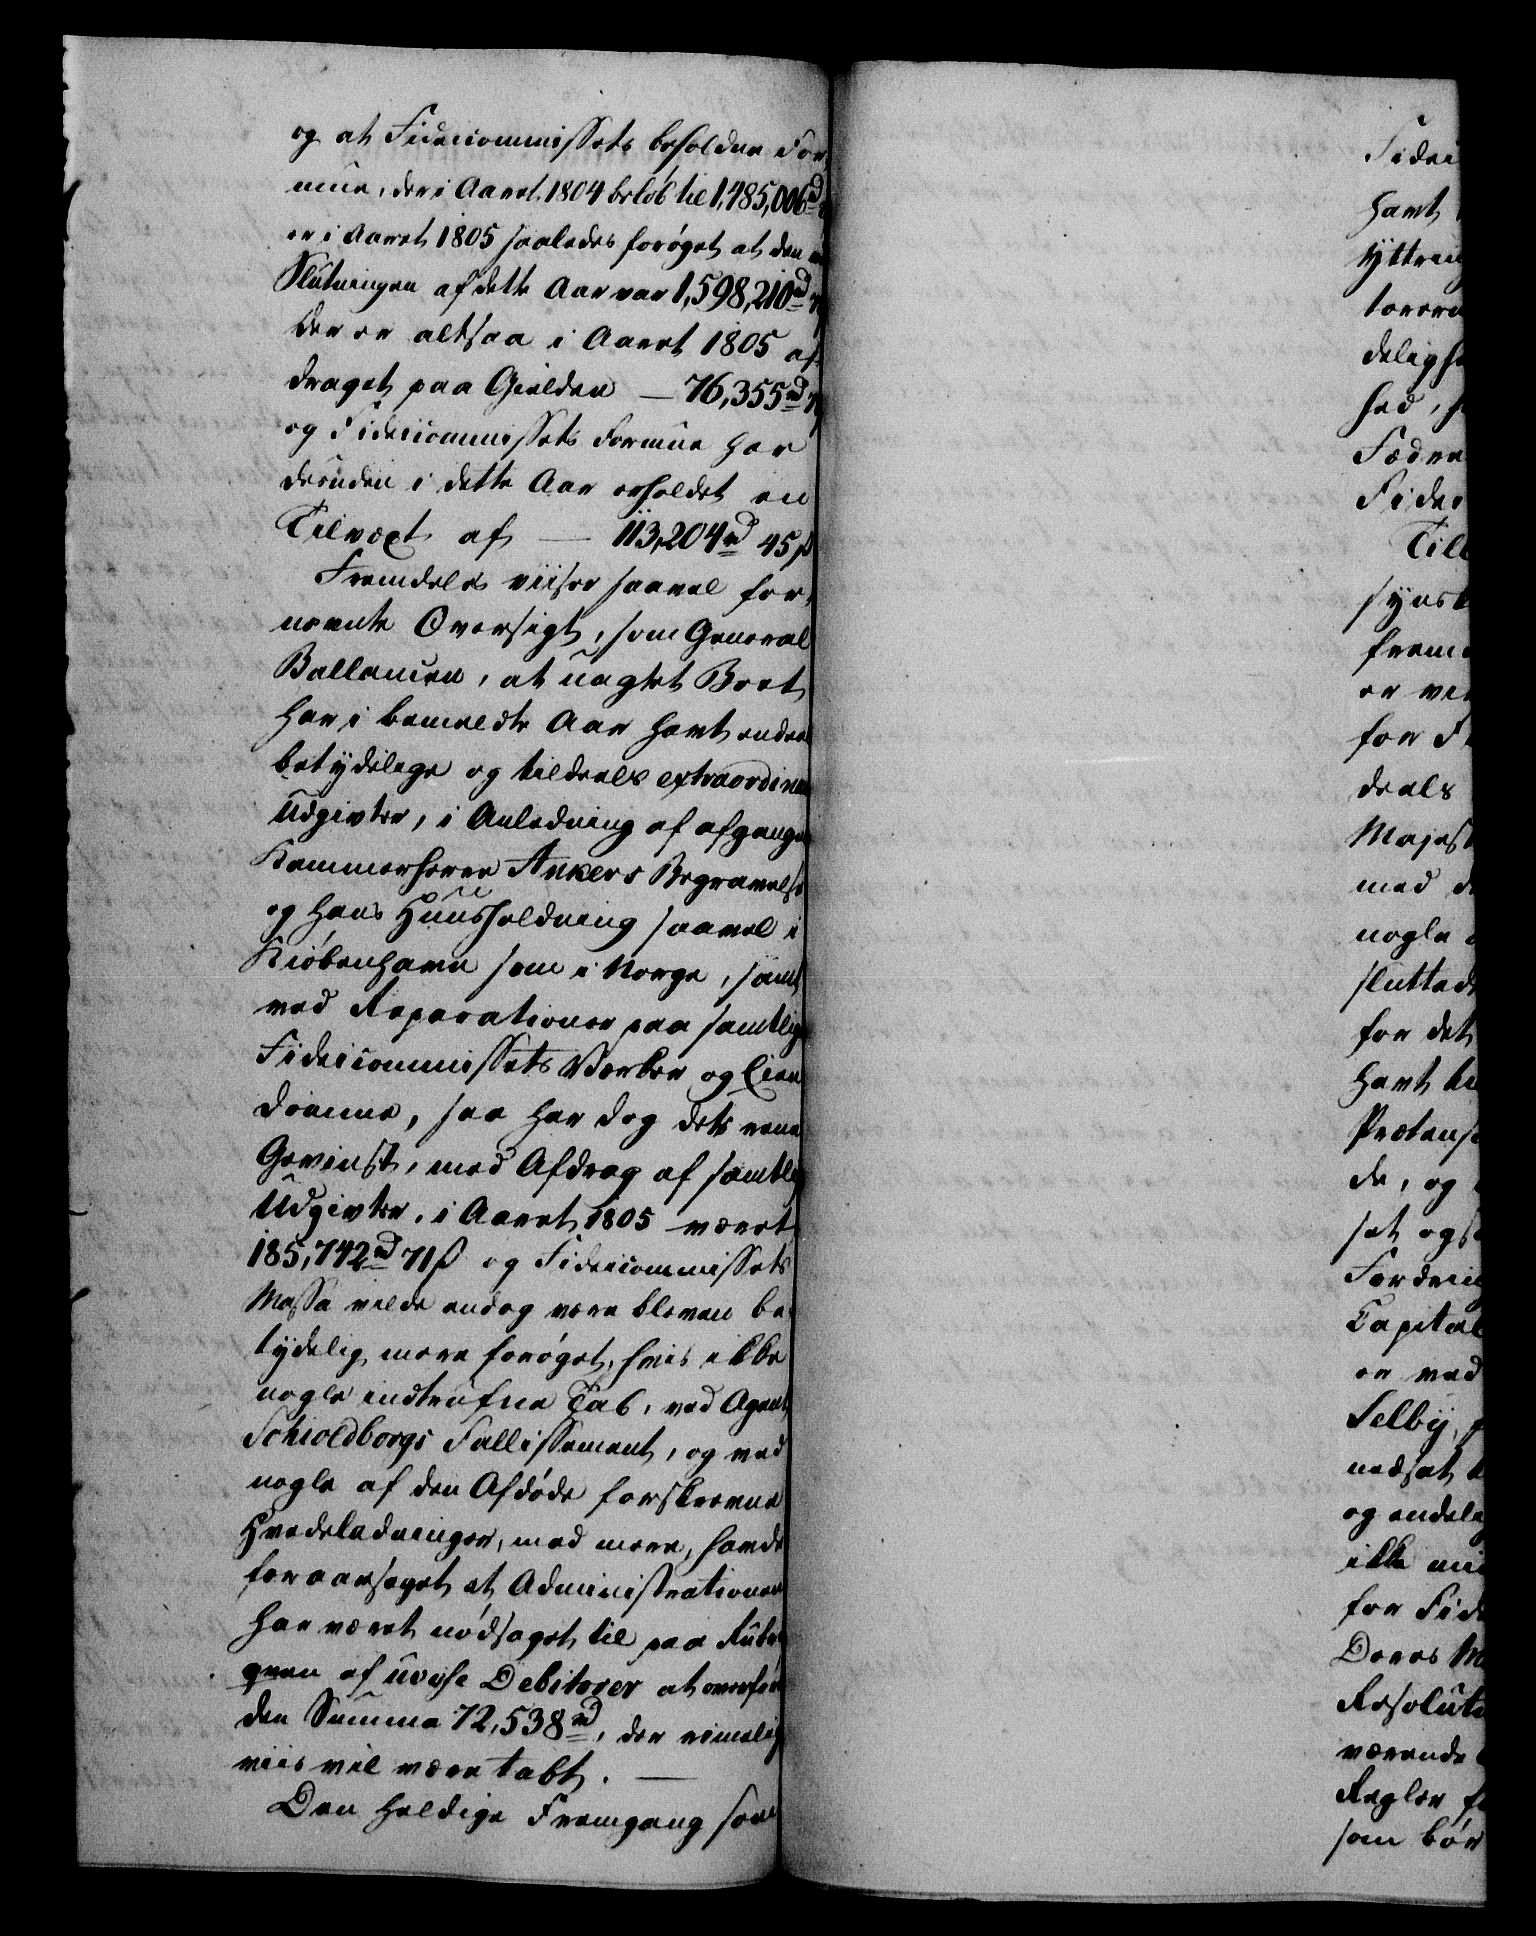 og at Fideicommissets beholdne For-
mue, der i Aaret 1804 beløb til 1,485,006rd
er i Aaret 1805 saaledes forøget at den ved
Slutningen af dette Aar var 1,598,210rd
Der er altsaa i Aaret 1805 af-
draget paa Gielden — 76,355rd
og Fideicommissets Formue har
desuden i dette Aar erholdet en
Tilvæxt af — 113,204rd 45ß
Fremdeles viiser saavel for-
nevnte Oversigt, som General
Ballancen, at uagtet Boet
har i bemeldte Aar havt endeel
betydelige og tildeels extraordinaire
Udgivter, i Anledning af afgangne
Kammerherre Ankers Begravelse
og hans Huusholdning saavel i
Kiøbenhavn som i Norge, samt
ved Reparationer paa samtlige
Fideicommissets Værker og Eien-
domme, saa har dog dets rene
Gevinst, med Afdrag af samtlige
Udgivter, i Aaret 1805 været
185,742rd 71ß og Fideicommissets
Massa vilde endog være bleven be-
tydelig mere forøget, hvis ikke
nogle indtrufne Tab, ved Agent
Schioldborgs Fallissement, og ved
nogle af den Afdøde forskrevne
Hvedeladninger, med mere, havde
foraarsaget at Administrationen
har været nødsaget til paa Rubri-
quen af uvisse Debitorer at overføre
den Summa 72,538rd, der rimelig-
viis vil være tabt. —
Den heldige Fremgang som
Fidei
havt
yttring
delig
hed,
Fædre
Fidei
syns
frem
er ve
for F
deels
Majest
med d
nogle
sluttede
for det
havt
Prætens
de, og
set ogs
Fordrin
Capital
er ved
Selby,
nedsat
og endelig
ikke mi
for Fide
Deres M
Resoluti
værende
Regler f
som bør